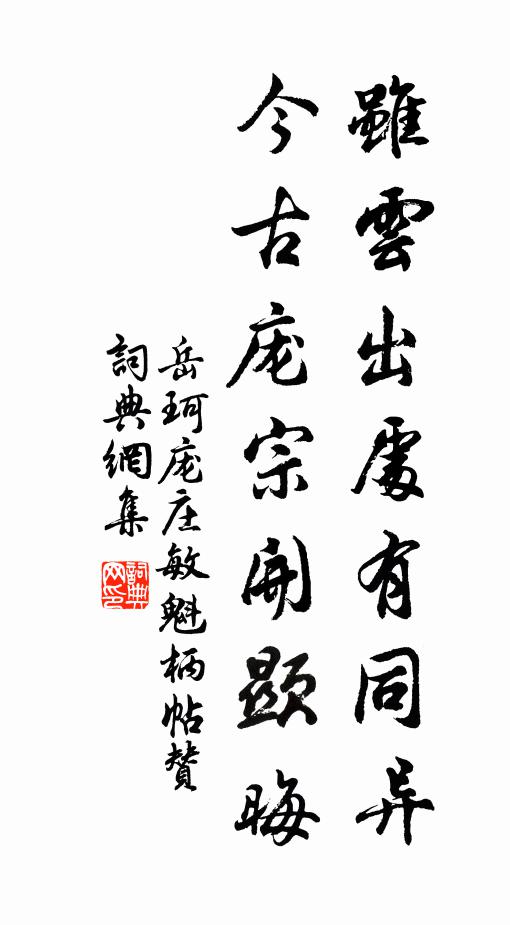 雖雲出處有同异
今古庞宗開顯晦
岳珂庞庄敏魁柄帖贊
詞典網集
詞典网印